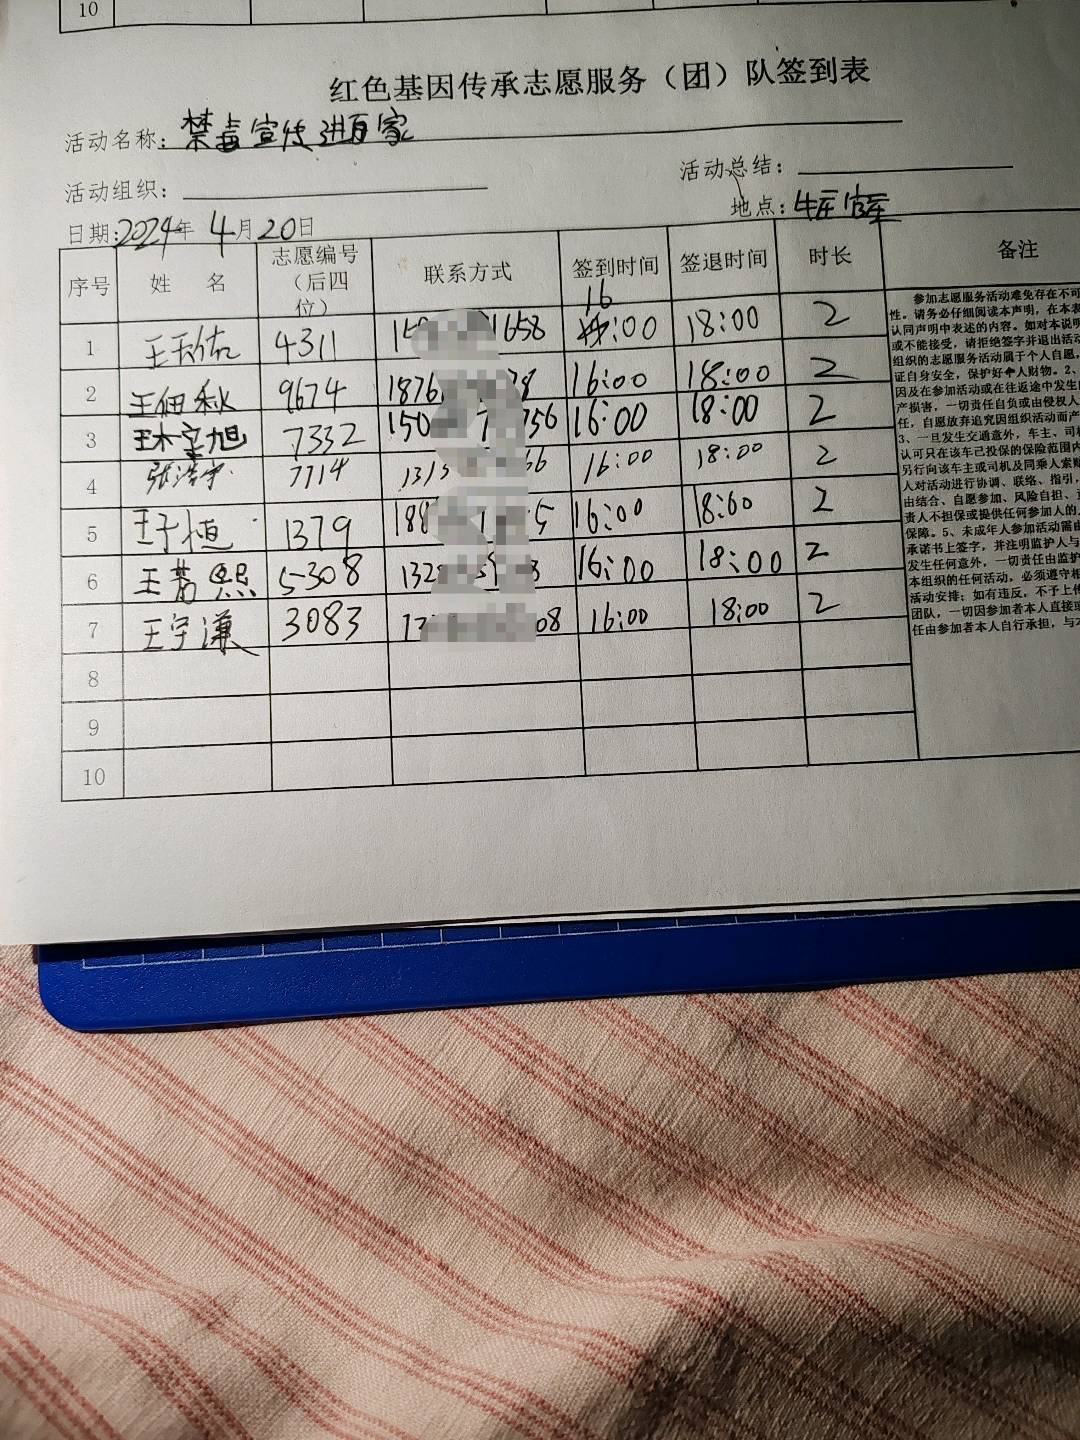 10
红色基因传承志愿服务（团）队签到表
活动名称：禁毒宣传进百家
活动组织：
活动总结：
日期：2024年 4月20日
地点：
序号 姓 名 志愿编号（后四位） 联系方式 签到时间 签退时间 时长 备注
1 王天佑 4311 1658 16:00 18:00 2
2 王佃秋 9674 1876 8 16:00 18:00 2
3 王宝旭 7332 150 7 756 16:00 18:00 2
4 张浩宇 7714 1313 66 16:00 18:00 2
5 王子恒 1379 188 5 16:00 18:00 2
6 王茗熙 5308 132 3 16:00 18:00 2
7 王宇谦 3083 08 16:00 18:00 2
8
9
10
参加志愿服务活动难免存在不可
性。请务必仔细阅读本声明，在本表
认同声明中表述的内容。如对本说明
或不能接受，请拒绝签字并退出活动
组织的志愿服务活动属于个人自愿，
证自身安全，保护好个人财物。2、
因及在参加活动或在往返途中发生的
产损害，一切责任自负或由侵权人
任，自愿放弃追究因组织活动而产
3、一旦发生交通意外，车主、司机
认可只在该车已投保的保险范围内
另行向该车主或司机及同乘人索赔
人对活动进行协调、联络、指引，
由结合、自愿参加、风险自担、
责人不担保或提供任何参加人的
保障。5、未成年人参加活动需由
承诺书上签字，并注明监护人与
发生任何意外，一切责任由监护
本组织的任何活动，必须遵守相
活动安排；如有违反，不予上传
团队，一切因参加者本人直接或
任由参加者本人自行承担，与本